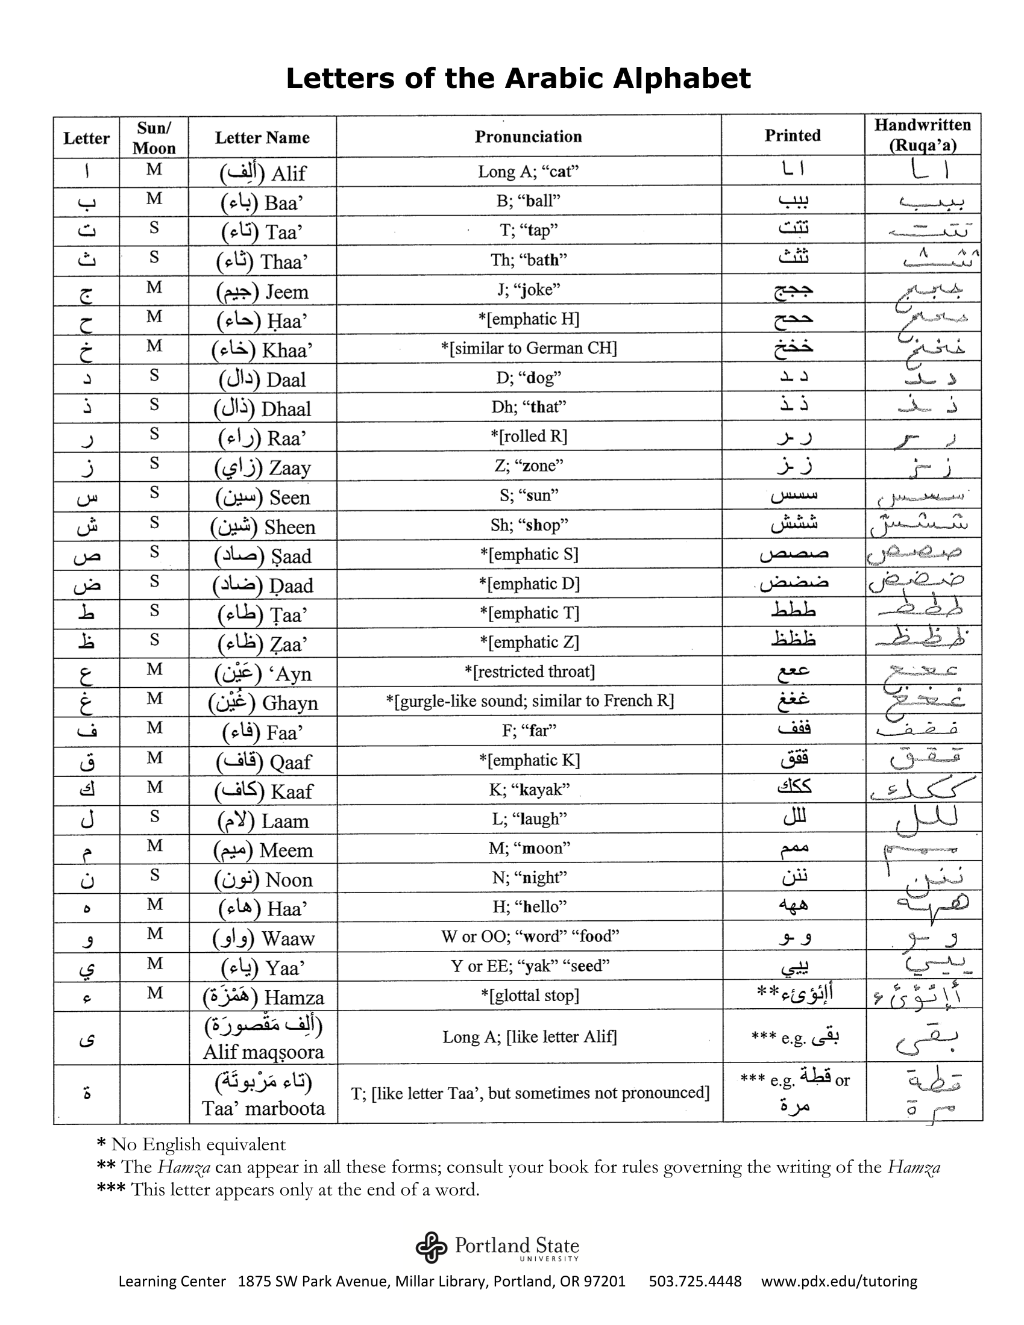 Letters of the Arabic Alphabet
Letter Sun/Moon Letter Name Pronunciation Printed Handwritten (Ruqa'a)
ا M (أَلِف) Alif Long A; “cat” ا ـا ا ـا
ب M (باء) Baa’ B; “ball” ببب ببب
ت S (تاء) Taa’ T; “tap” تتت تتت
ث S (ثاء) Thaa’ Th; “bath” ثثث ثثث
ج M (جيم) Jeem J; “joke” ججج ججج
ح M (حاء) Ḥaa’ *[emphatic H] ححح ححح
خ M (خاء) Khaa’ *[similar to German CH] خخخ خخخ
د S (دال) Daal D; “dog” د ـد د ـد
ذ S (ذال) Dhaal Dh; “that” ذ ـذ ذ ـذ
ر S (راء) Raa’ *[rolled R] ر ـر ر ـر
ز S (زاي) Zaay Z; “zone” ز ـز ز ـز
س S (سين) Seen S; “sun” سسس سسس
ش S (شين) Sheen Sh; “shop” ششش ششش
ص S (صاد) Ṣaad *[emphatic S] صصص صصص
ض S (ضاد) Ḍaad *[emphatic D] ضضض ضضض
ط S (طاء) Ṭaa’ *[emphatic T] ططط ططط
ظ S (ظاء) Ẓaa’ *[emphatic Z] ظظظ ظظظ
ع M (عَيْن) ‘Ayn *[restricted throat] ععع ععع
غ M (غَيْن) Ghayn *[gurgle-like sound; similar to French R] غغغ غغغ
ف M (فاء) Faa’ F; “far” ففف ففف
ق M (قاف) Qaaf *[emphatic K] ققق ققق
ك M (كاف) Kaaf K; “kayak” ككك ككك
ل S (لام) Laam L; “laugh” للل للل
م M (ميم) Meem M; “moon” ممم ممم
ن S (نون) Noon N; “night” ننن ننن
ه M (هاء) Haa’ H; “hello” ههه ههه
و M (واو) Waaw W or OO; “word” “food” و ـو و ـو
ي M (ياء) Yaa’ Y or EE; “yak” “seed” ييي ييي
ء M (هَمْزَة) Hamza *[glottal stop] **أإئؤئء أإئؤئء
ى (أَلِف مَقْصورَة) Alif maqṣoora Long A; [like letter Alif] *** e.g. بقى بقى
ة (تاء مَرْبوتَة) Taa’ marboota T; [like letter Taa’, but sometimes not pronounced] *** e.g. قطة or مرة قطة مرة
* No English equivalent
** The Hamza can appear in all these forms; consult your book for rules governing the writing of the Hamza
*** This letter appears only at the end of a word.
Portland State
UNIVERSITY
Learning Center 1875 SW Park Avenue, Millar Library, Portland, OR 97201 503.725.4448 www.pdx.edu/tutoring